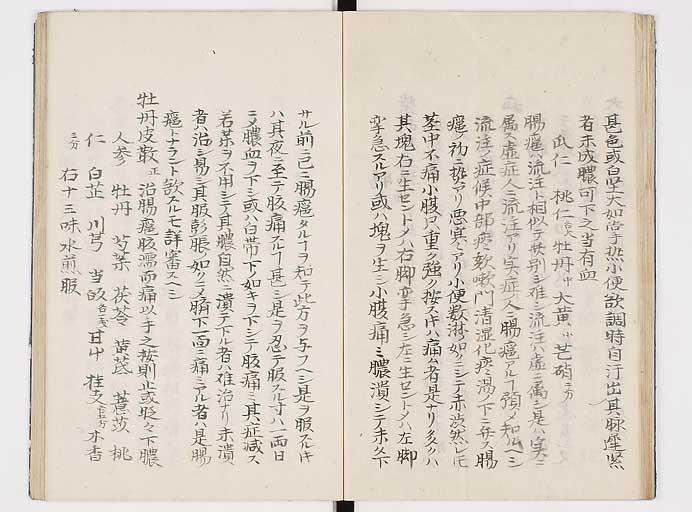 甚色或白堅大如掌熱小便欲調時自汗出其脉遲緊
者未成膿可下之當有血
瓜仁 桃仁 牡丹 大黄 芒硝
腸癰ハ流注ト相似テ分別シ難シ流注ハ虚ニ属シ是ハ実ニ
属ス虚症人ニ流注アリ実症ノ人ニ腸癰アルヿ預メ知ルヘシ
流注ノ症候中部疼欬嗽門清湿化痰湯ノ下ニ弁ス腸
癰ノ初ニ熱アリ悪寒アリ小便数淋ノ如クニシテ赤渋然レ𪜈
茎中不痛小腹只重ク強ク按スレハ痛ム者是ナリ多クハ
其塊右ニ生セントノハ右脚攣急シ左ニ生セントノハ左脚
攣急スルアリ或ハ塊ヲ生シ小腹痛ミ膿潰シテ未タ下
サル前ニ已ニ腸癰タルヿヲ知テ此方ヲ与フヘシ是ヲ服スルキ
ハ其夜ニ至テ腹痛スルヿ甚シ是ヲ忍テ服スル寸ハ一両日
ニメ膿血ヲ下シ或ハ白帯下ノ如キヲ下シテ腹痛ミ其症減ス
若薬ヲ不用シテ其膿自然ニ潰テ下ル者ハ難治ナリ未潰
者ハ治シ易シ其腹彭脹ノ如クニメ臍下面ニ痛ミアル者ハ是腸
癰トナラント欲スルモ詳審スヘシ
牡丹皮散 正 治腸癰腹濡而痛以手之按則止或時々下膿
人参 牡丹 芍薬 茯苓 黄芪 薏苡 桃
仁 白芷 川芎 当皈 甘艸 桂支 木香
右十三味水煎服